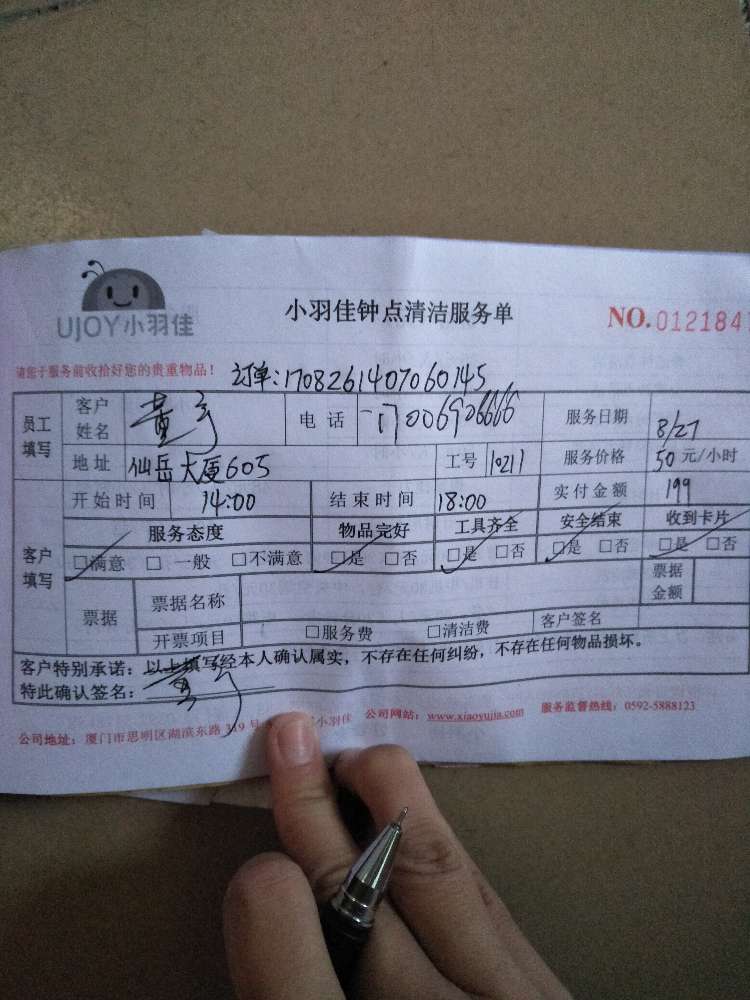 UJOY小羽佳
小羽佳钟点清洁服务单
NO.012184
请您于服务前收拾好您的贵重物品！ 订单:1708261407060145
员工填写 客户姓名 董 电话 17006906666 服务日期 8/27
地址 仙岳大厦605 工号 10211 服务价格 50元/小时
客户填写 开始时间 14:00 结束时间 18:00 实付金额 199
服务态度 物品完好 工具齐全 安全结束 收到卡片
□满意 □一般 □不满意 □是 □否 □是 □否 □是 □否 □是 □否
票据 票据名称 票据金额
开票项目 □服务费 □清洁费 客户签名
客户特别承诺：以上填写经本人确认属实，不存在任何纠纷，不存在任何物品损坏。
特此确认签名： 董
公司地址：厦门市思明区湖滨东路319号 小羽佳 公司网站：www.xiaoyujia.com 服务监督热线：0592-5888123